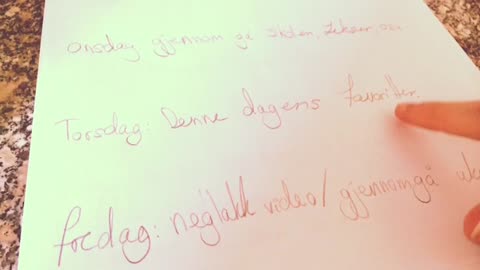 Onsdag gjennom gå skolen, lekser, osv
Torsdag: Denne dagens favoritter.
fredag: neglakk video/gjennomgå